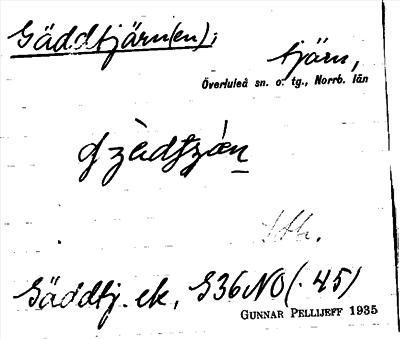 Gäddtjärn(en);
tjärn,
Överluleå sn. o. tg., Norrb. län
Gäddtj. ek, S36NO(. 45)
GUNNAR PELLIJEFF 1935